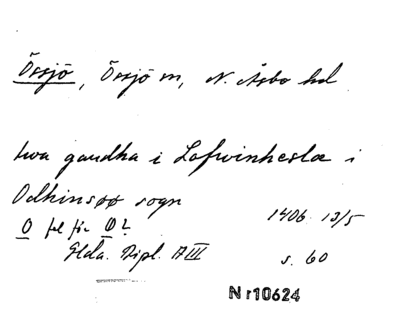 Össjö, Össjö sn, N. Åsbo hd
twa gaardha i Lafwinheslæ i
Odhinsøø sogn
1406 12/5
O fel för Ø?
Glda. Dipl. A III
s. 60
Nr10624